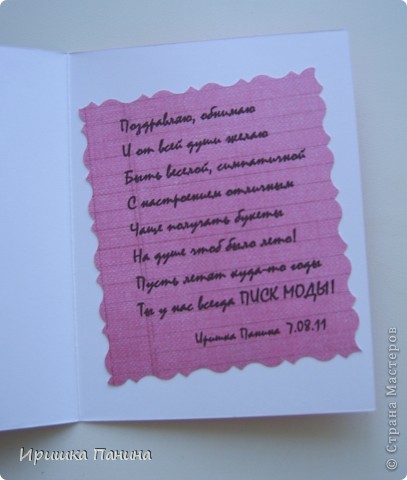 Поздравляю, обнимаю
И от всей души желаю
Быть веселой, симпатичной
С настроением отличным
Чаще получать букеты
На душе чтоб было лето!
Пусть летят куда-то годы
Ты у нас всегда ПИСК МОДЫ!
Иришка Панина 7.08.11
Иришка Панина
© Страна Мастеров